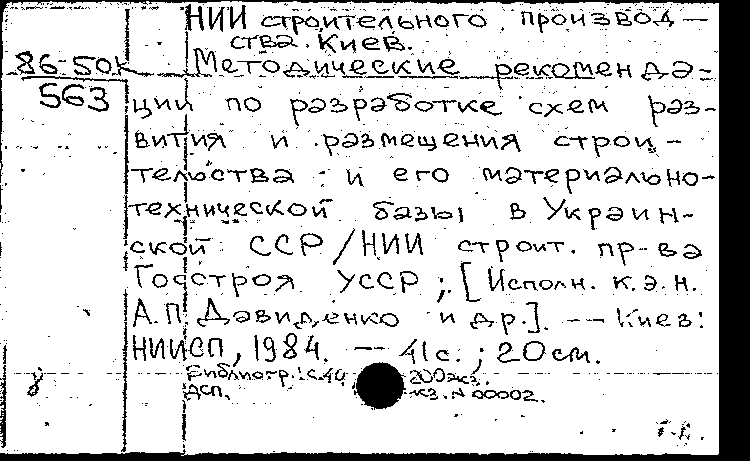 НИИ строительного производ—
ства. Киев.
86-50к
563
Методические рекоменда=
ции по разработке схем раз-
вития и размещения строи-
тельства и его материально-
технической базы в Украин-
ской ССР / НИИ строит. пр-ва
Госстроя УССР ; [Исполн. к.э.н.
А.П. Давиденко и др.]. -- Киев:
НИИСП, 1984. — 41 с. ; 20 см.
Библиогр.: с. 40 200 экз.
ДСП. кз. N 00002.